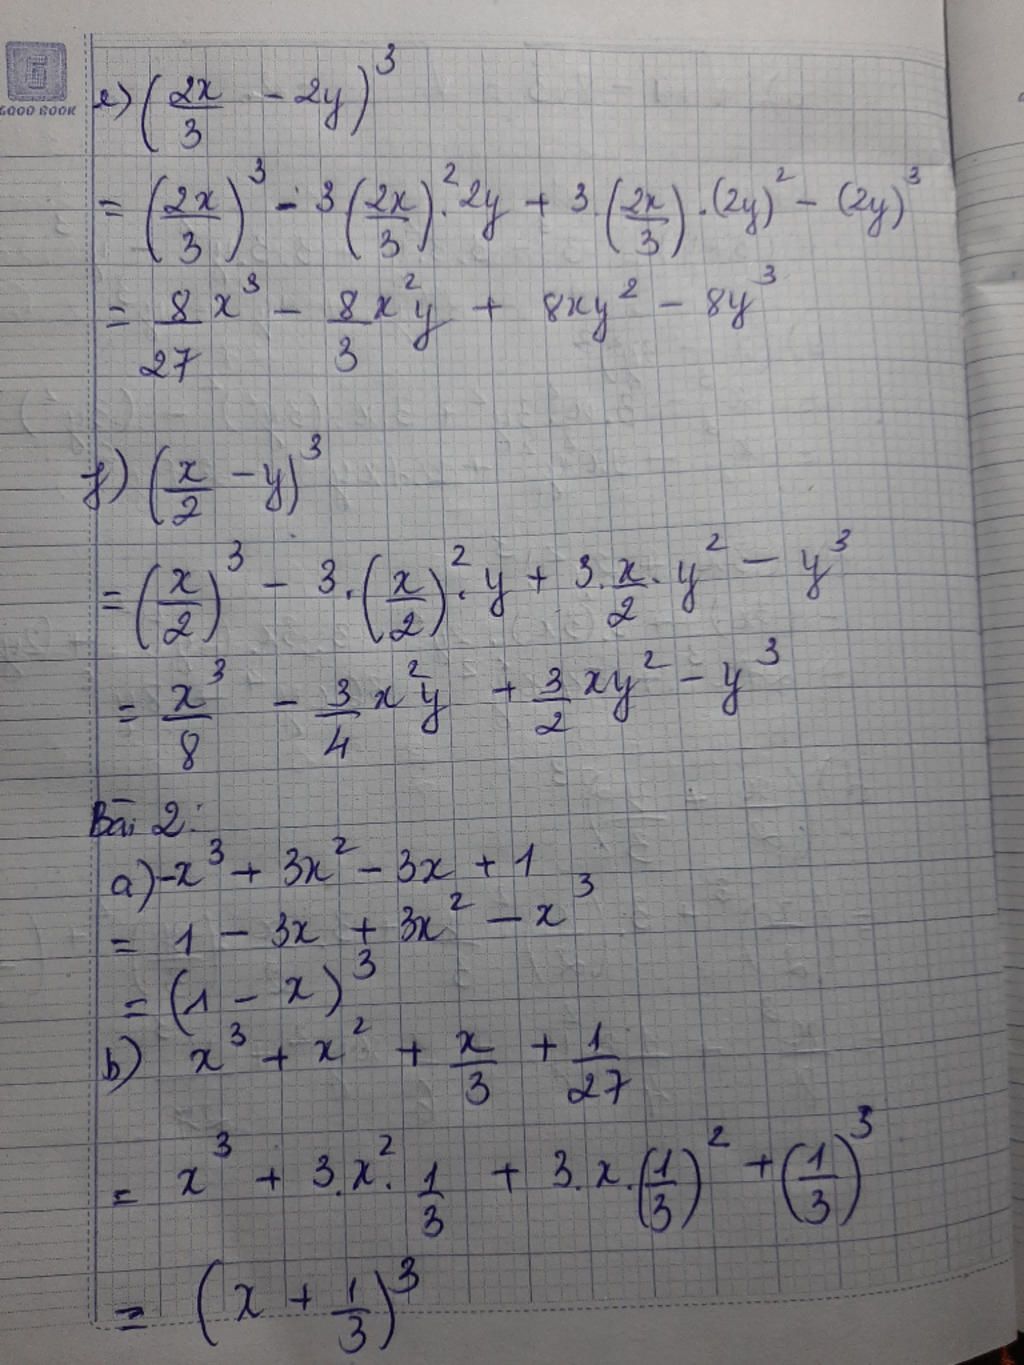 GOOD BOOK
e) (2x/3 - 2y)³
= (2x/3)³ - 3(2x/3)².2y + 3.(2x/3).(2y)² - (2y)³
= 8/27 x³ - 8/3 x²y + 8xy² - 8y³
f) (x/2 - y)³
= (x/2)³ - 3.(x/2)².y + 3.x/2.y² - y³
= x³/8 - 3/4 x²y + 3/2 xy² - y³
Bài 2:
a) -x³ + 3x² - 3x + 1
= 1 - 3x + 3x² - x³
= (1 - x)³
b) x³ + x² + x/3 + 1/27
= x³ + 3.x².1/3 + 3.x.(1/3)² + (1/3)³
= (x + 1/3)³